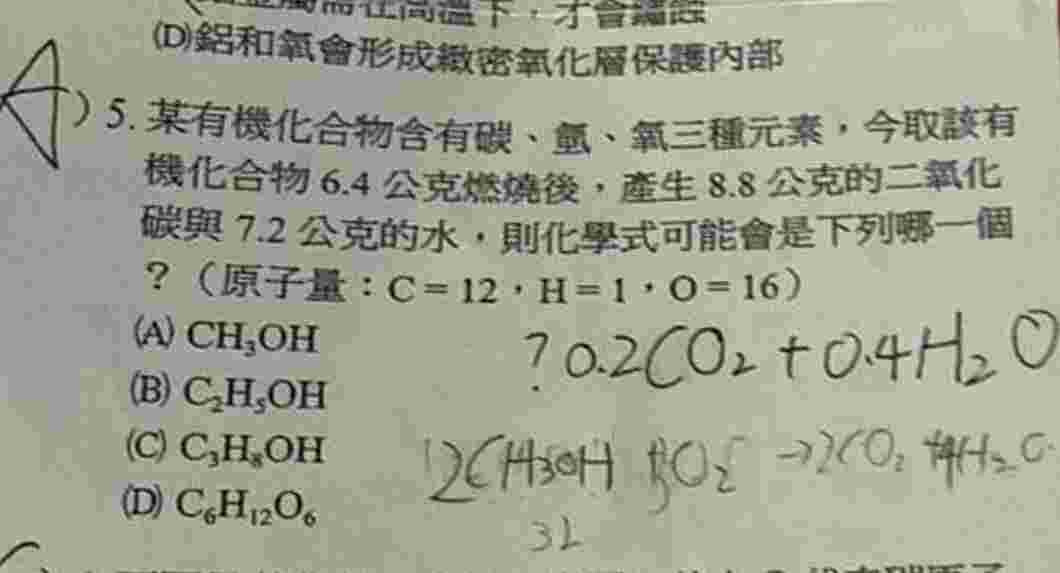 下，才會鏽蝕
(D)鋁和氧會形成緻密氧化層保護內部
A) 5. 某有機化合物含有碳、氫、氧三種元素，今取該有
機化合物 6.4 公克燃燒後，產生 8.8 公克的二氧化
碳與 7.2 公克的水，則化學式可能會是下列哪一個
？（原子量：C＝12，H＝1，O＝16）
(A) CH₃OH
? 0.2CO₂ + 0.4H₂O
(B) C₂H₅OH
(C) C₃H₈OH
2CH3OH 3O₂ → 2CO₂ + 4H₂O
(D) C₆H₁₂O₆
32